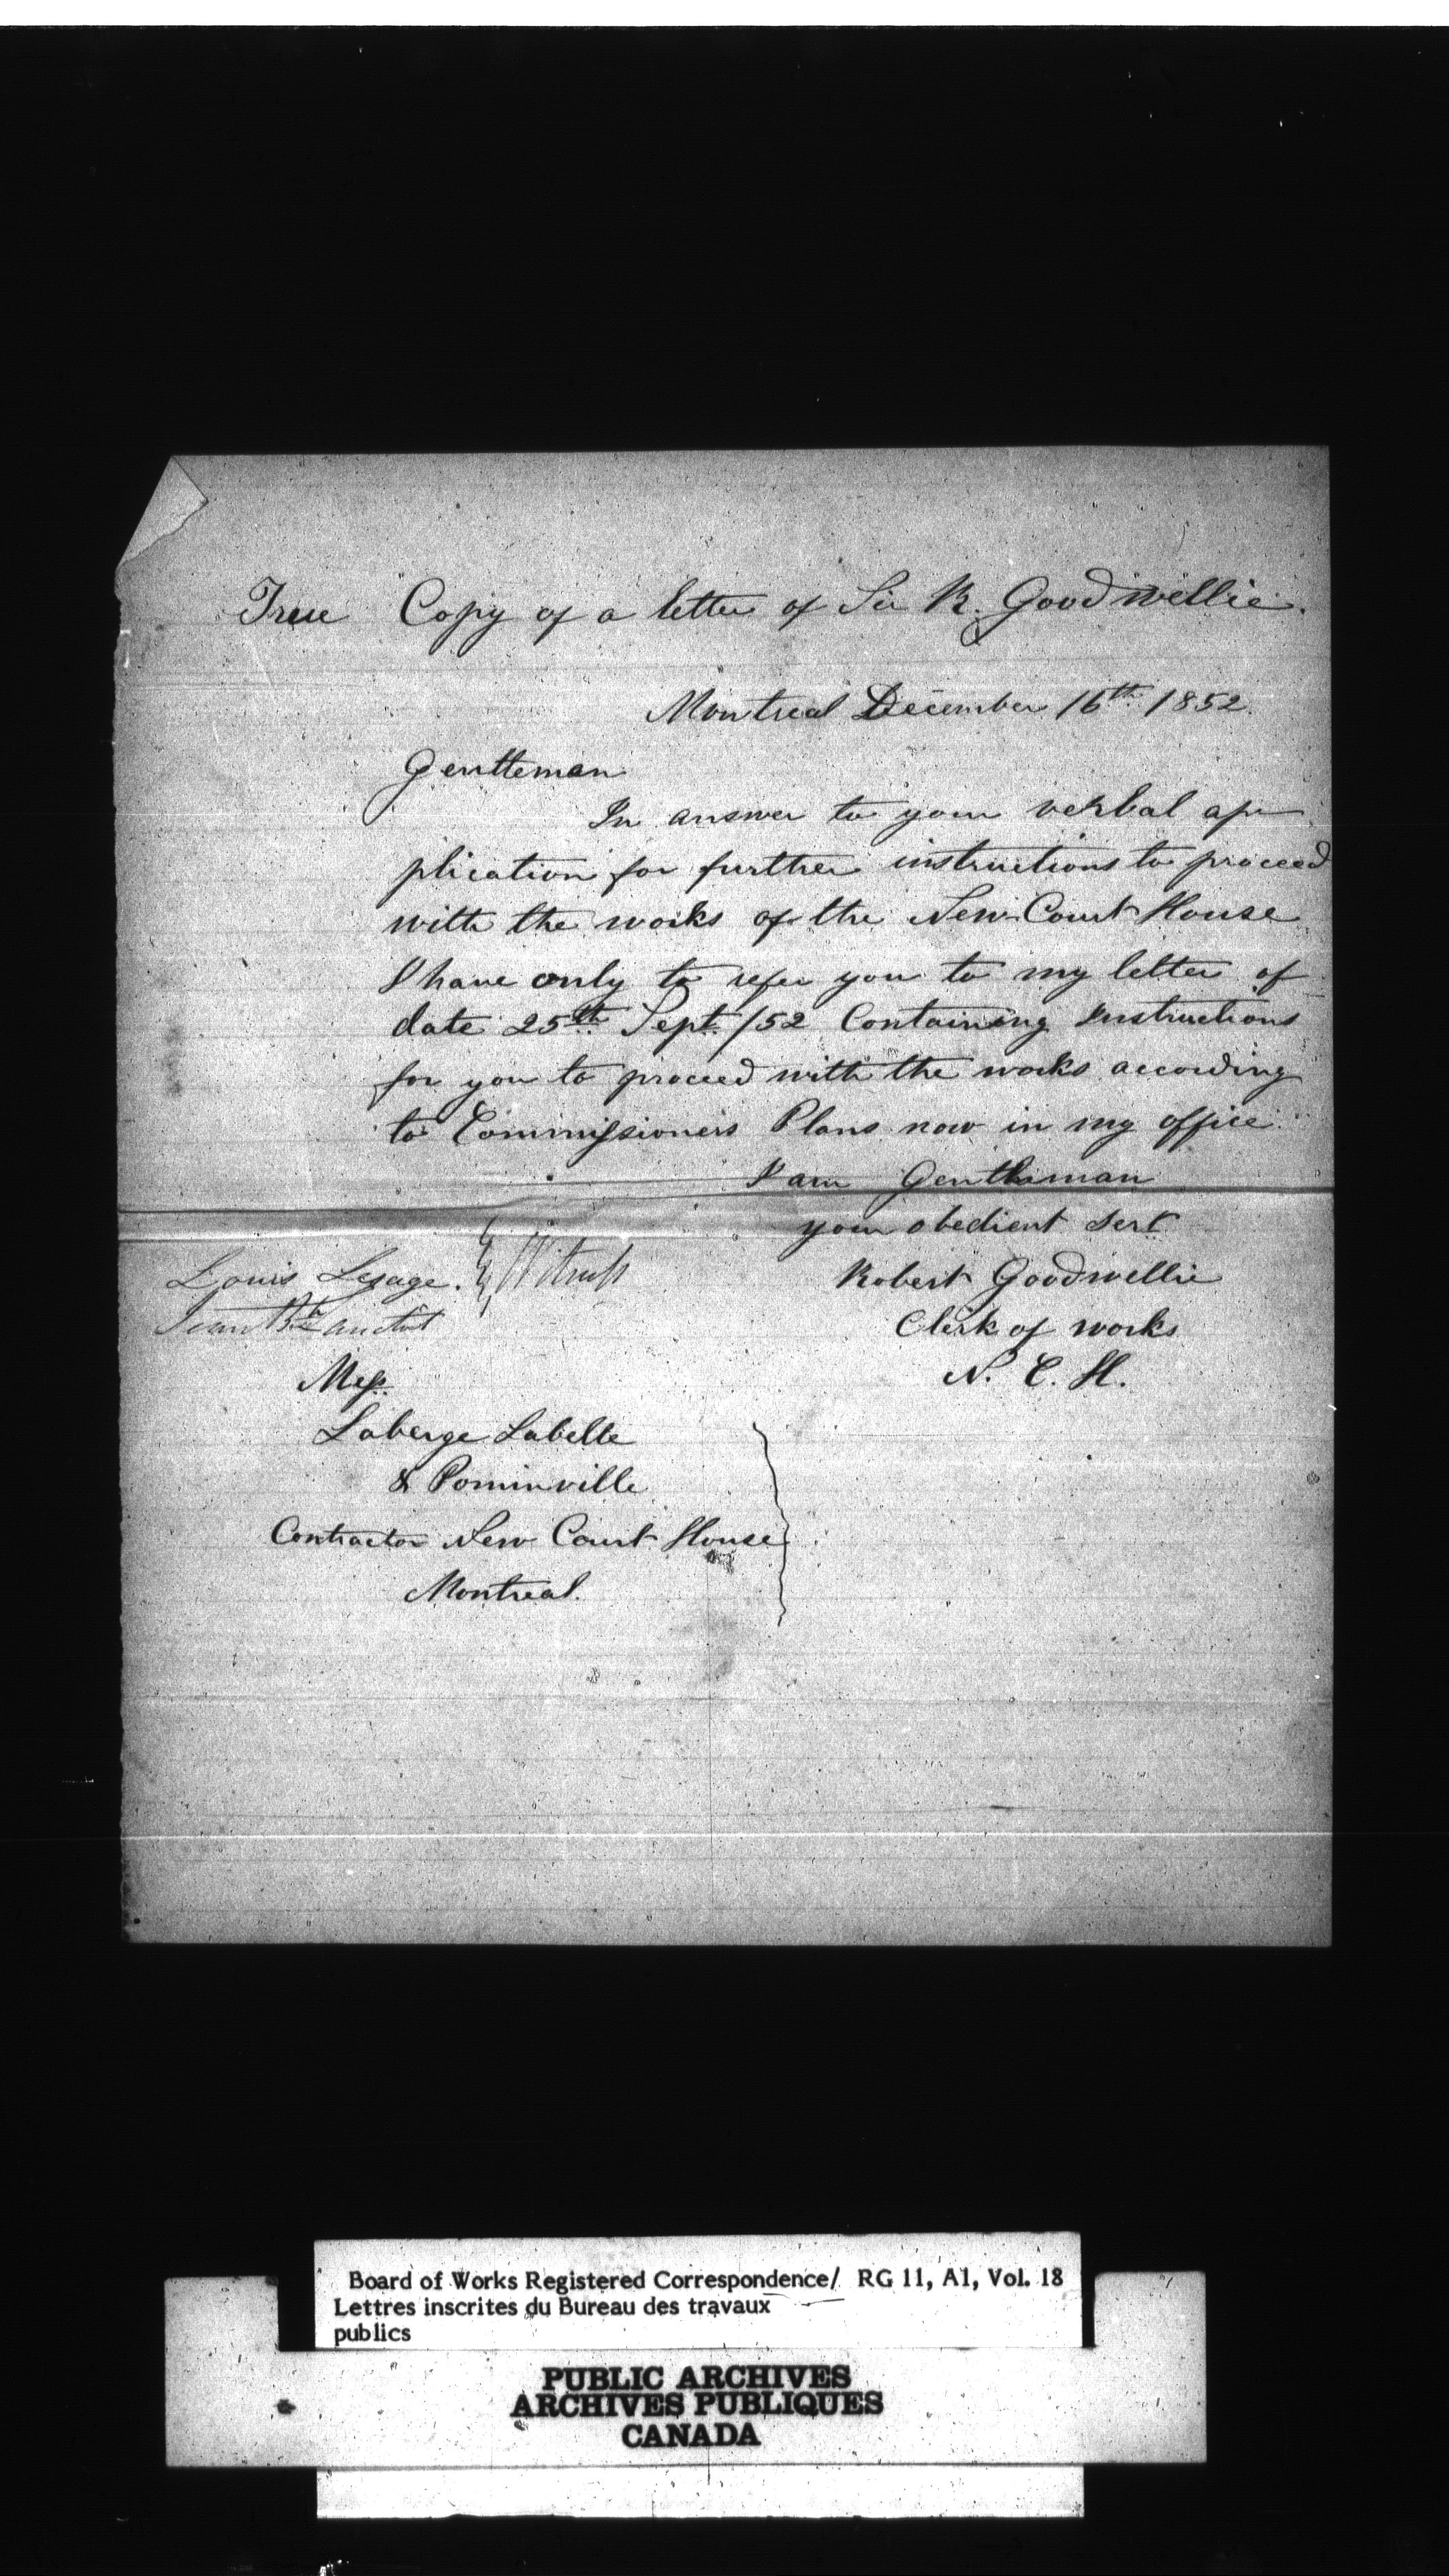 True Copy of a letter of Sir R. Goodwellie.
Montreal December 16th 1852.
Gentleman
In answer to your verbal ap-
plication for further instructions to proceed
with the works of the New Court House
I have only to refer you to my letter of
date 25th Sept. /52 Containing Instructions
for you to proceed with the works according
to Commissioners Plans now in my office.
I am Gentleman
your obedient Sert
Louis Lesage. Witness
Robert Goodwellie
Jean Bte
Clerk of works
N. C. H.
Mess.
Laberge Labelle
& Pominville
Contractor New Court House
Montreal.
Board of Works Registered Correspondence/ RG 11, A1, Vol. 18
Lettres inscrites du Bureau des travaux
publics
PUBLIC ARCHIVES
ARCHIVES PUBLIQUES
CANADA